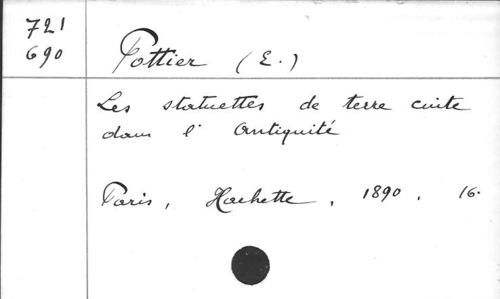 721
690
Pottier (E.)
Les statuettes de terre cuite
dans l' Antiquité
Paris, Hachette, 1890, 16.